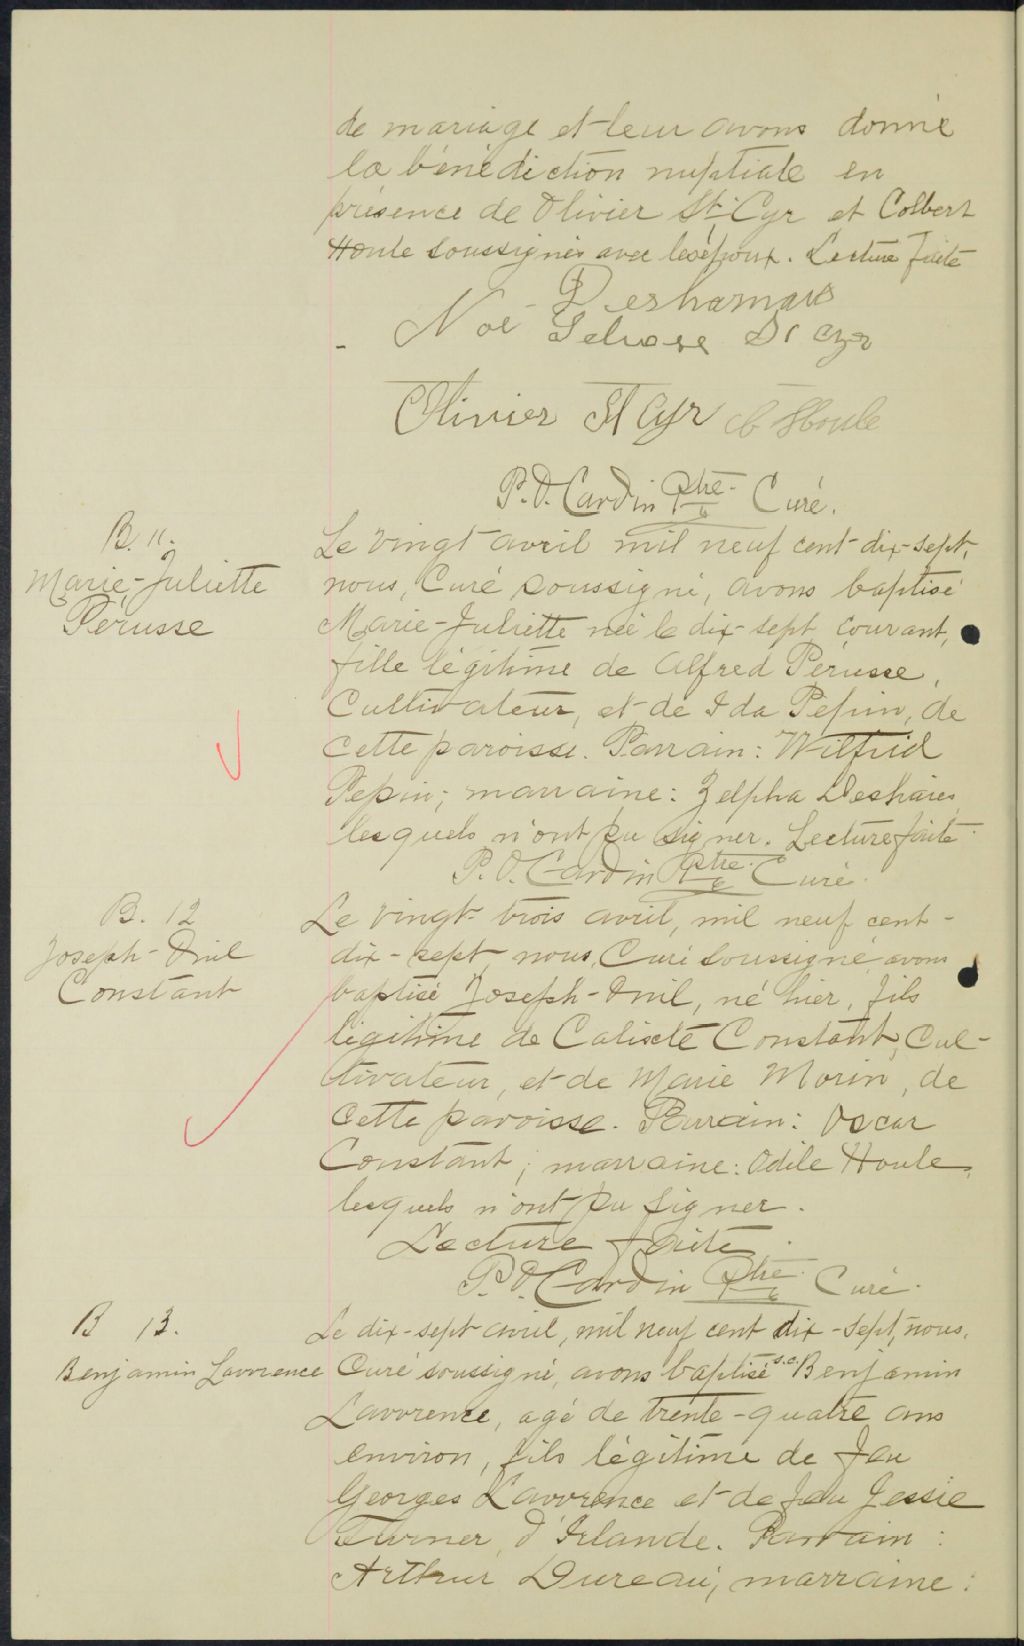 de mariage et leur avons donné
la bénédiction nuptiale en
présence de Olivier St-Cyr et Colbert
Houle soussignés avec les époux. Lecture faite
Noé Desharnais
St Cyr
Olivier St Cyr C Houle
P.O. Cardin Ptre Curé.
B. 11.
Marie-Juliette
Pérusse
Le vingt avril mil neuf cent dix-sept,
nous, Curé soussigné, avons baptisé
Marie-Juliette née le dix-sept courant,
fille légitime de Alfred Pérusse,
Cultivateur, et de Ida Pepin, de
cette paroisse. Parrain: Wilfrid
Pepin; marraine: Zelpha Deshaies,
lesquels n'ont pu signer. Lecture faite.
P.O. Cardin Ptre Curé.
B. 12
Joseph-Onil
Constant
Le vingt-trois avril, mil neuf cent-
dix-sept, nous, Curé soussigné, avons
baptisé Joseph-Onil, né hier, fils
légitime de Calixte Constant, Cul-
tivateur, et de Marie Morin, de
cette paroisse. Parrain: Oscar
Constant; marraine: Odile Houle,
lesquels n'ont pu signer.
Lecture faite.
P.O. Cardin Ptre Curé.
B 13.
Benjamin Lawrence
Le dix-sept avril, mil neuf cent dix-sept, nous,
Curé soussigné, avons baptisé s.c. Benjamin
Lawrence, agé de trente-quatre ans
environ, fils légitime de feu
Georges Lawrence et de feu Jessie
Turner, d'Irlande. Parrain:
Arthur Dureau; marraine: